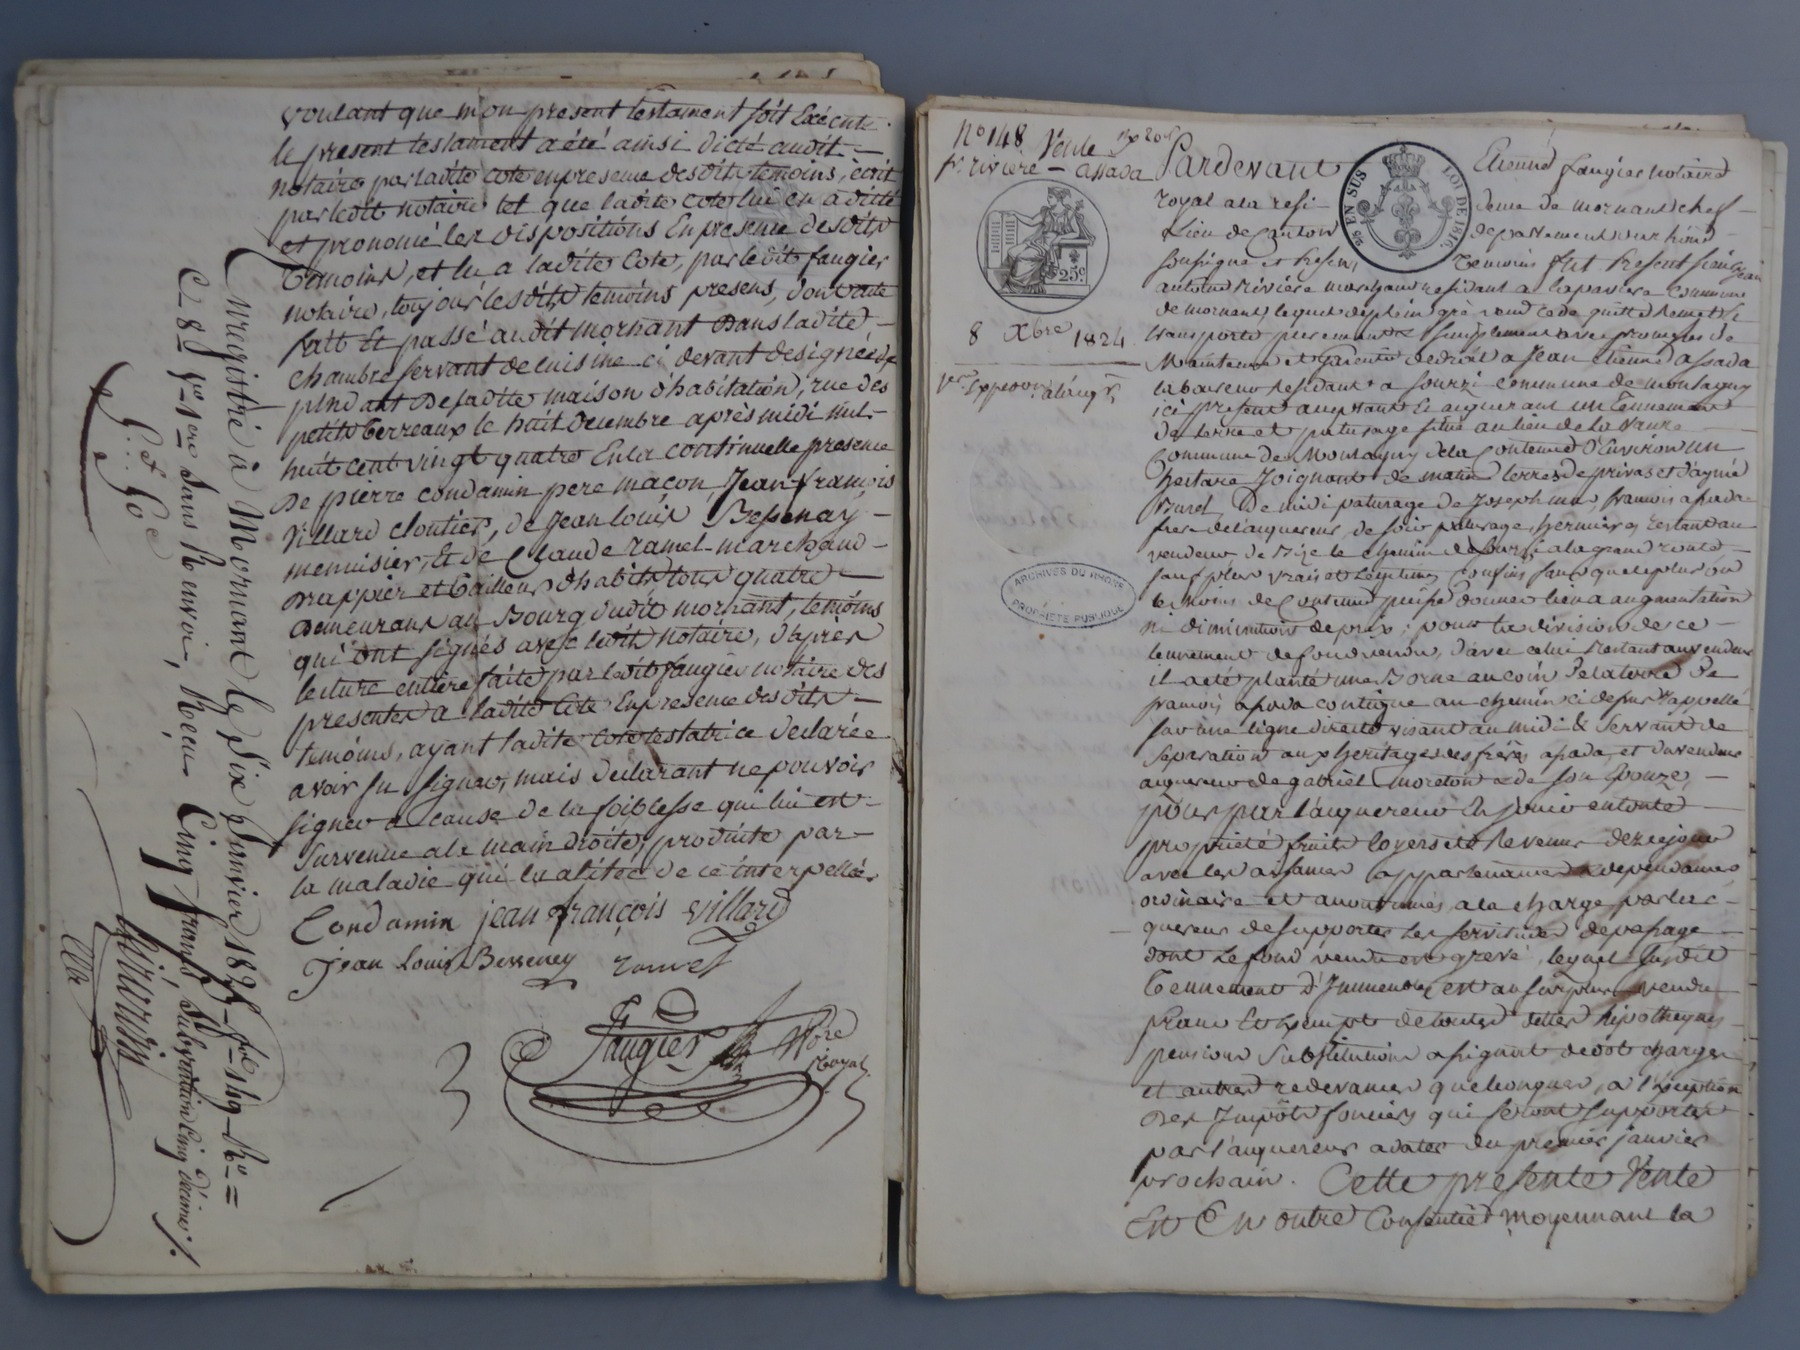 voulant que mon present testament soit Exécuté.
le present testament a été ainsi dicté audit
notaire par ladite cote en presence desdits temoins, écrit
par ledit notaire tel que ladite cote lui en a dicté
et prononcé les dispositions En presence desdits
temoins, et lu a ladite Cote, par ledit faugier
notaire, toujours lesdits temoins presens, dont acte
fait Et passé audit mornant Dans ladite
chambre servant de cuisine ci devant designée de
pendant De sadite maison d'habitation, rue des
petits terreaux le huit decembre après midi mil
huit cent vingt quatre En la continuelle presence
De pierre condamin pere maçon, Jean-françois
Villard cloutier, de Jean louis Bessenay
menuisier, Et de Claude ramel marchand
Drappier et tailleur d'habits tous quatre
Demeurans au Bourg dudit mornant, temoins
qui ont signés avec ledit notaire, d'après
lecture entière faite par ledit faugier notaire des
presentes a ladite Cote En presence desdits
temoins, ayant ladite cote testatrice declarée
avoir su signer, mais declarant ne pouvoir
signer a cause de la foiblesse qui lui est
survenue a la main droite, produite par
la maladie qui la alitée de ce interpellée.
Condamin jean françois villard
Jean Louis Besseney ramel
Faugier Nore
Royal
Enregistré à Mornant le Six Janvier 1825 fol 149 Ro
C 8 Ve 1ere Sans Renvoi, Reçu Cinq francs, Subvention Cinq décimes /.
5 f 50 c
No 148 Vente
fs riviere - assada
25c
8 Xbre 1824
1re Expedon a l'aqr
ARCHIVES DU RHONE
PROPRIÉTÉ PUBLIQUE
25 EN SUS LOI DE 1816.
Pardevant Etienne faugier notaire
royal a la resi- dence de mornant chef
Lieu de Canton departement du rhone
soussigne et presens Temoins fut present sieur Jean
antoine riviere marchand residant a lapaviere Commune
de mornant, lequel de plein gré vend cede quitte remet et
transporte purement et simplement avec promesse de
Maintenue et garentie de droit a Jean etienne assada
laboureur residant a sourzi commune de montagny
ici present acceptant et aquerant un tennement
de terre et paturage situé au lieu de la vaure
Commune de Montagny de la Contenue d'Environ un
hectare Joignant de matin terres de privas et d'aymé
Buret, De midi paturage de Joseph et françois assada
frere de l'aquereur, de soir paturage hermures restant au
vendeur de Bize le chemin de sourzi a la grand route
sauf plus vrais et legitimes Confins sans que le plus ou
le moins de Contenue puisse donner lieu a augmentation
ni diminution de prix; pour la division de ce
tennement de fond vendu, d'avec celui restant au vendeur
il a été planté une Borne au coin de la terre de
françois assada contigue au chemin ci dessus rappellé
sur une ligne directe visant au midi &c servant de
separation aux heritages des frères assada, et du vendeur
aquereur de gabriel moreton et de son Epouze,
pour par l'aquereur En jouir en toute
propriété fruits loyers et revenus dez ce jour
avec les aisances appartenances dependances
ordinaires et accoutumés a la charge par l'ac-
quereur de supporter les servitudes de passage
dont le fond vendu est grevé, lequel susdit
tennement d'Immeuble est au surplus vendu
franc et exempt de toutes dettes hipotheques
pensions substitutions assignat de dot charges
et autres redevances quelconques, a l'exception
des Impôts fonciers qui seront supportés
par l'aquereur a dater du premier janvier
prochain. Cette presente Vente
Est En outre Consentie moyennant la